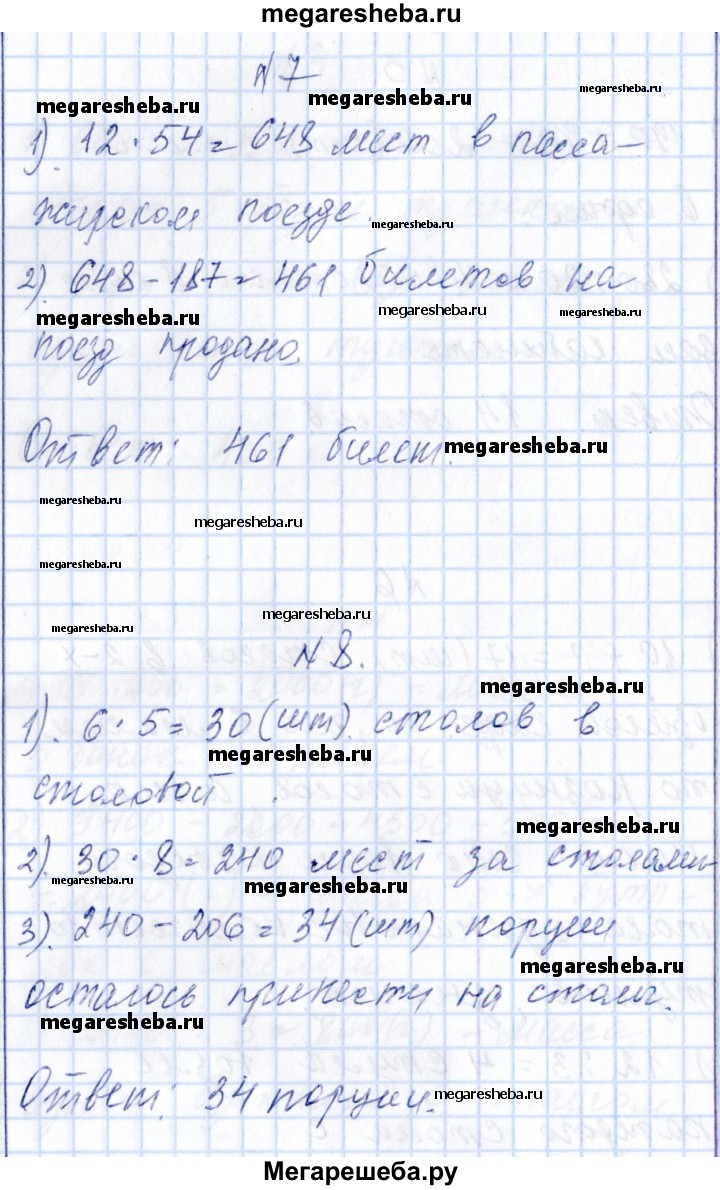 megaresheba.ru
N7
megaresheba.ru
megaresheba.ru
megaresheba.ru
1). 12·54=648 мест в пасса-
жирском поезде.
megaresheba.ru
2). 648-187=461 билетов на
megaresheba.ru
megaresheba.ru
megaresheba.ru
поезд продано
Ответ: 461 билет.
megaresheba.ru
megaresheba.ru
megaresheba.ru
megaresheba.ru
megaresheba.ru
megaresheba.ru
N8.
megaresheba.ru
1). 6·5=30(шт). столов в
megaresheba.ru
столовой.
megaresheba.ru
2). 30·8=240 мест за столами
megaresheba.ru
megaresheba.ru
3). 240-206=34(шт) порции
megaresheba.ru
осталось принести на столы.
megaresheba.ru
Ответ: 34 порции.
megaresheba.ru
Мегарешеба.ру